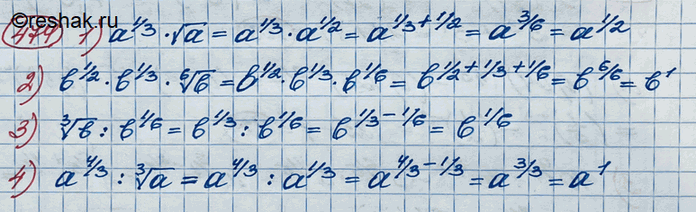 ©reshak.ru
474 1) a^{1/3} · √a = a^{1/3} · a^{1/2} = a^{1/3+1/2} = a^{3/6} = a^{1/2}
2) b^{1/2} · b^{1/3} · ⁶√b = b^{1/2} · b^{1/3} · b^{1/6} = b^{1/2+1/3+1/6} = b^{6/6} = b^1
3) ³√b : b^{1/6} = b^{1/3} : b^{1/6} = b^{1/3-1/6} = b^{1/6}
4) a^{4/3} : ³√a = a^{4/3} : a^{1/3} = a^{4/3-1/3} = a^{3/3} = a^1